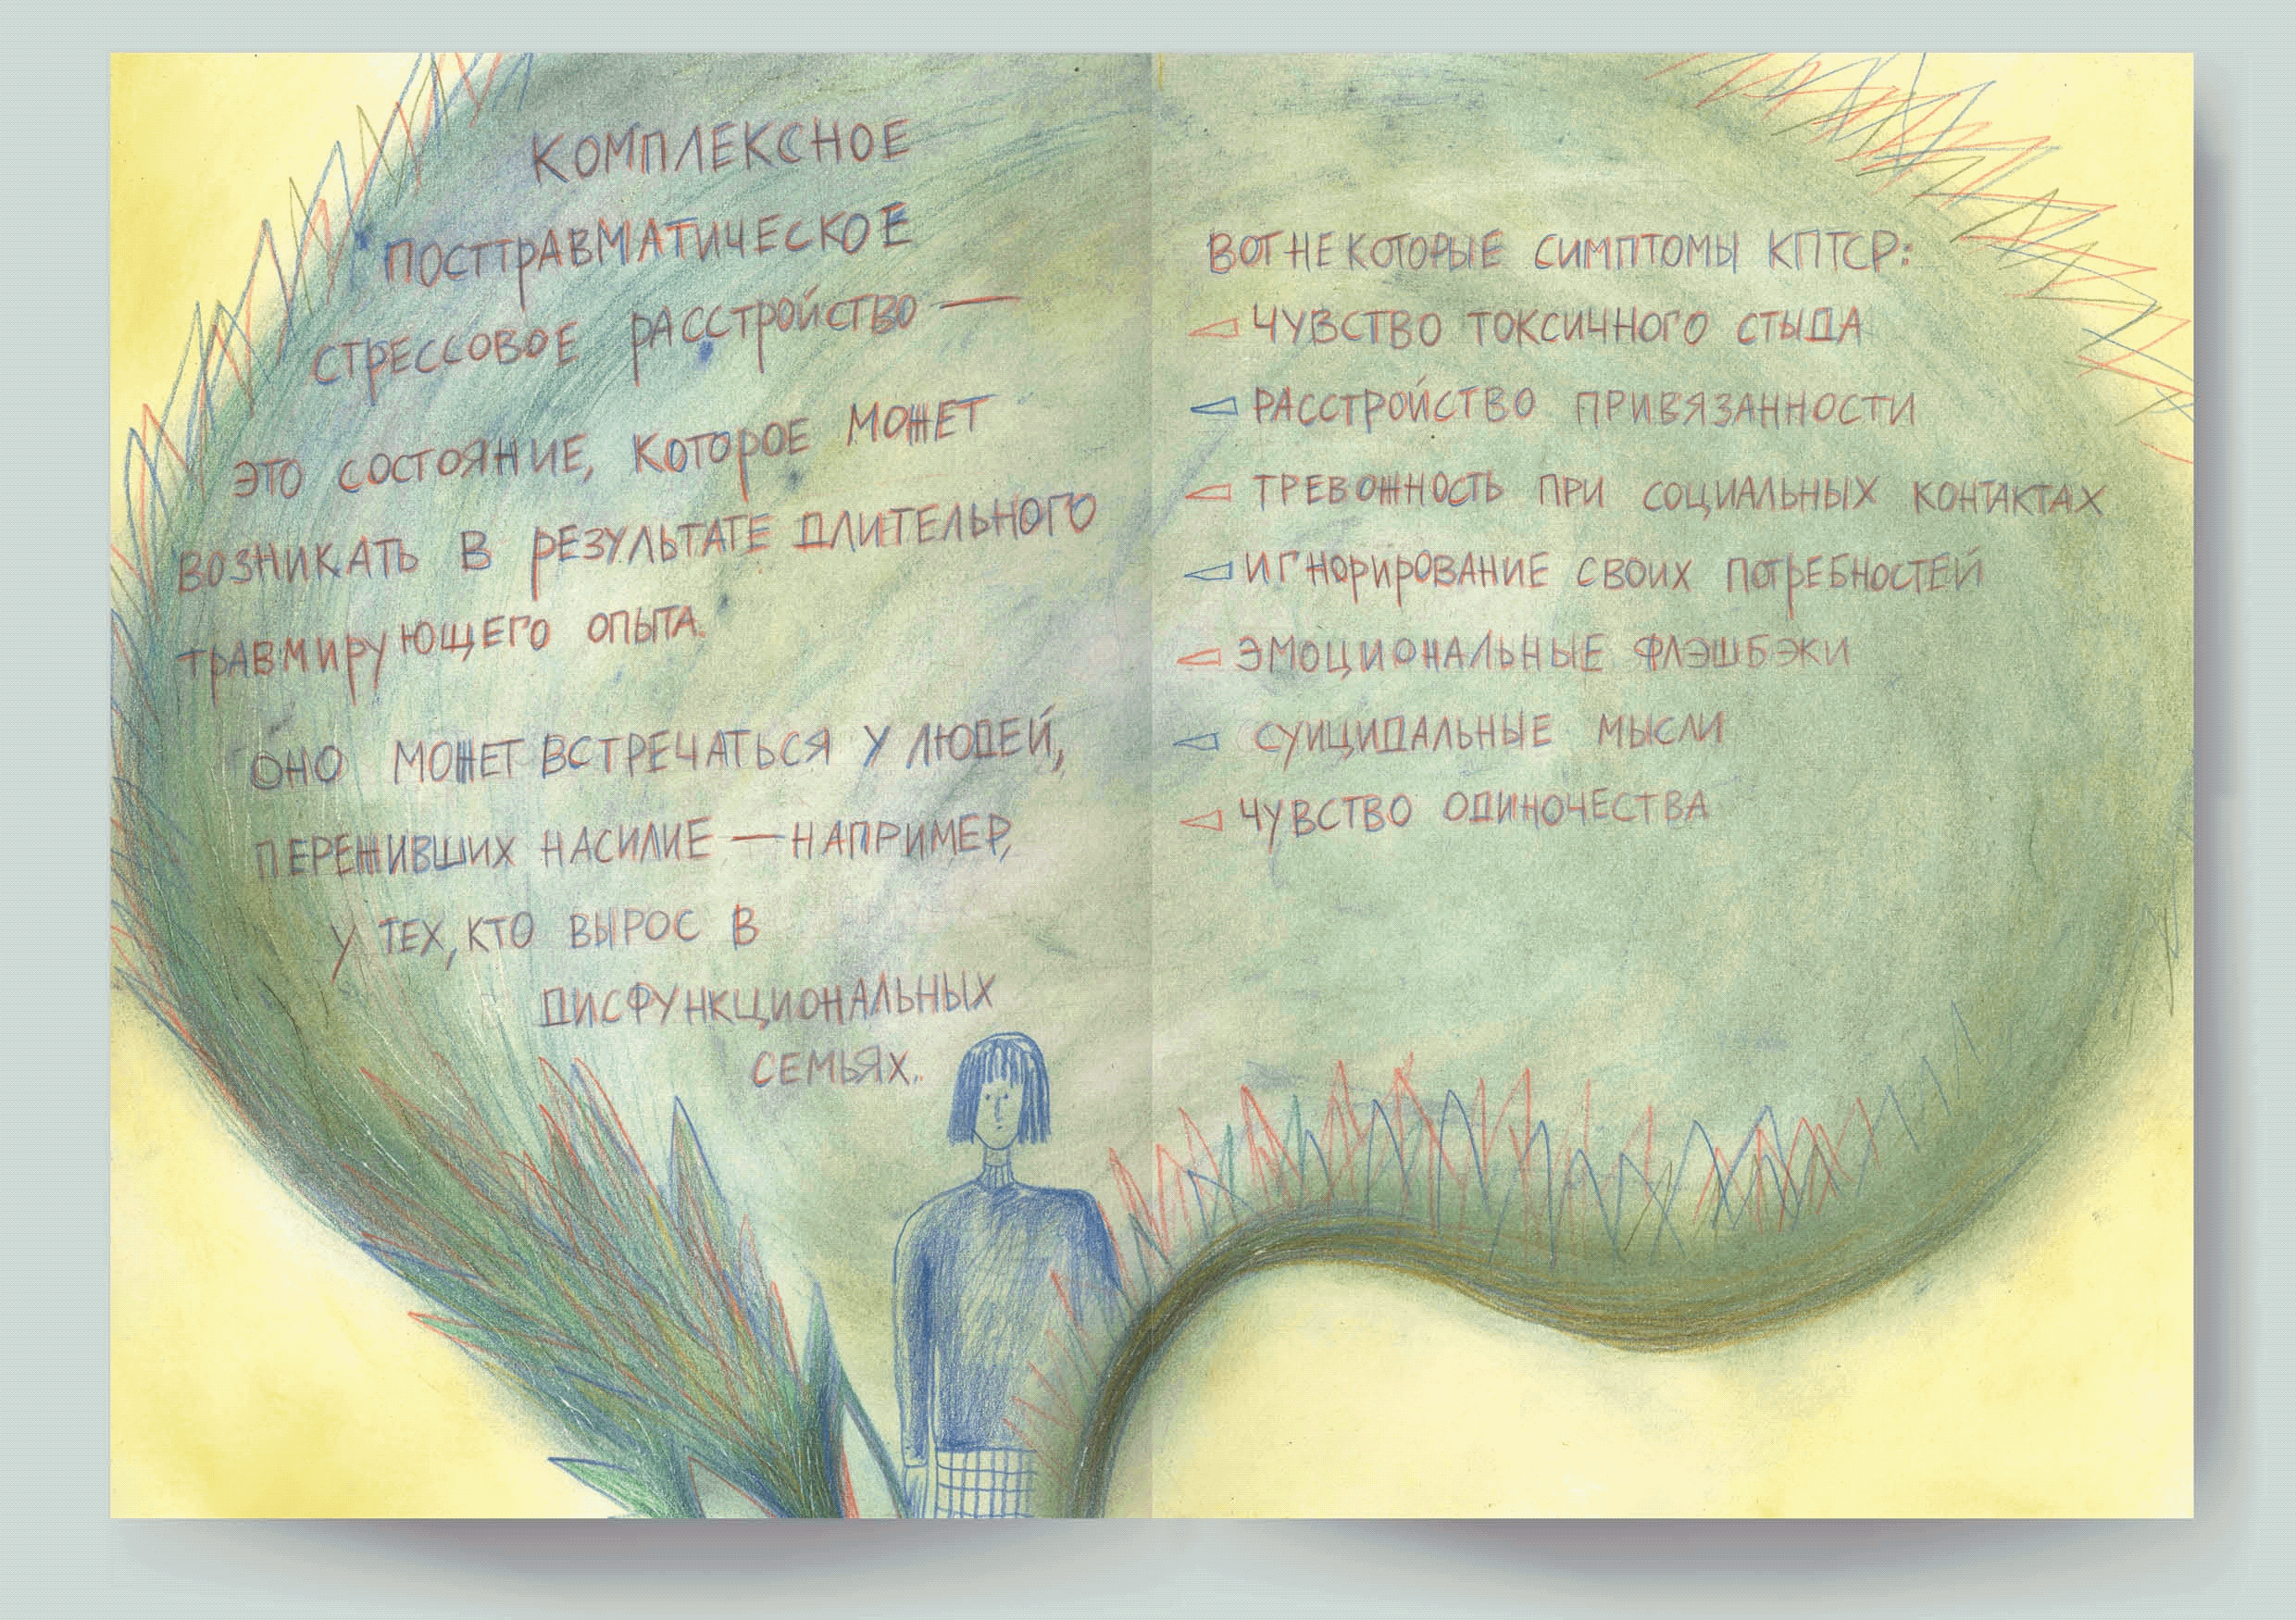 КОМПЛЕКСНОЕ
ПОСТТРАВМАТИЧЕСКОЕ
СТРЕССОВОЕ РАССТРОЙСТВО —
ЭТО СОСТОЯНИЕ, КОТОРОЕ МОЖЕТ
ВОЗНИКАТЬ В РЕЗУЛЬТАТЕ ДЛИТЕЛЬНОГО
ТРАВМИРУЮЩЕГО ОПЫТА.
ОНО МОЖЕТ ВСТРЕЧАТЬСЯ У ЛЮДЕЙ,
ПЕРЕЖИВШИХ НАСИЛИЕ — НАПРИМЕР,
У ТЕХ, КТО ВЫРОС В
ДИСФУНКЦИОНАЛЬНЫХ
СЕМЬЯХ.
ВОТ НЕКОТОРЫЕ СИМПТОМЫ КПТСР:
ЧУВСТВО ТОКСИЧНОГО СТЫДА
РАССТРОЙСТВО ПРИВЯЗАННОСТИ
ТРЕВОЖНОСТЬ ПРИ СОЦИАЛЬНЫХ КОНТАКТАХ
ИГНОРИРОВАНИЕ СВОИХ ПОТРЕБНОСТЕЙ
ЭМОЦИОНАЛЬНЫЕ ФЛЭШБЭКИ
СУИЦИДАЛЬНЫЕ МЫСЛИ
ЧУВСТВО ОДИНОЧЕСТВА